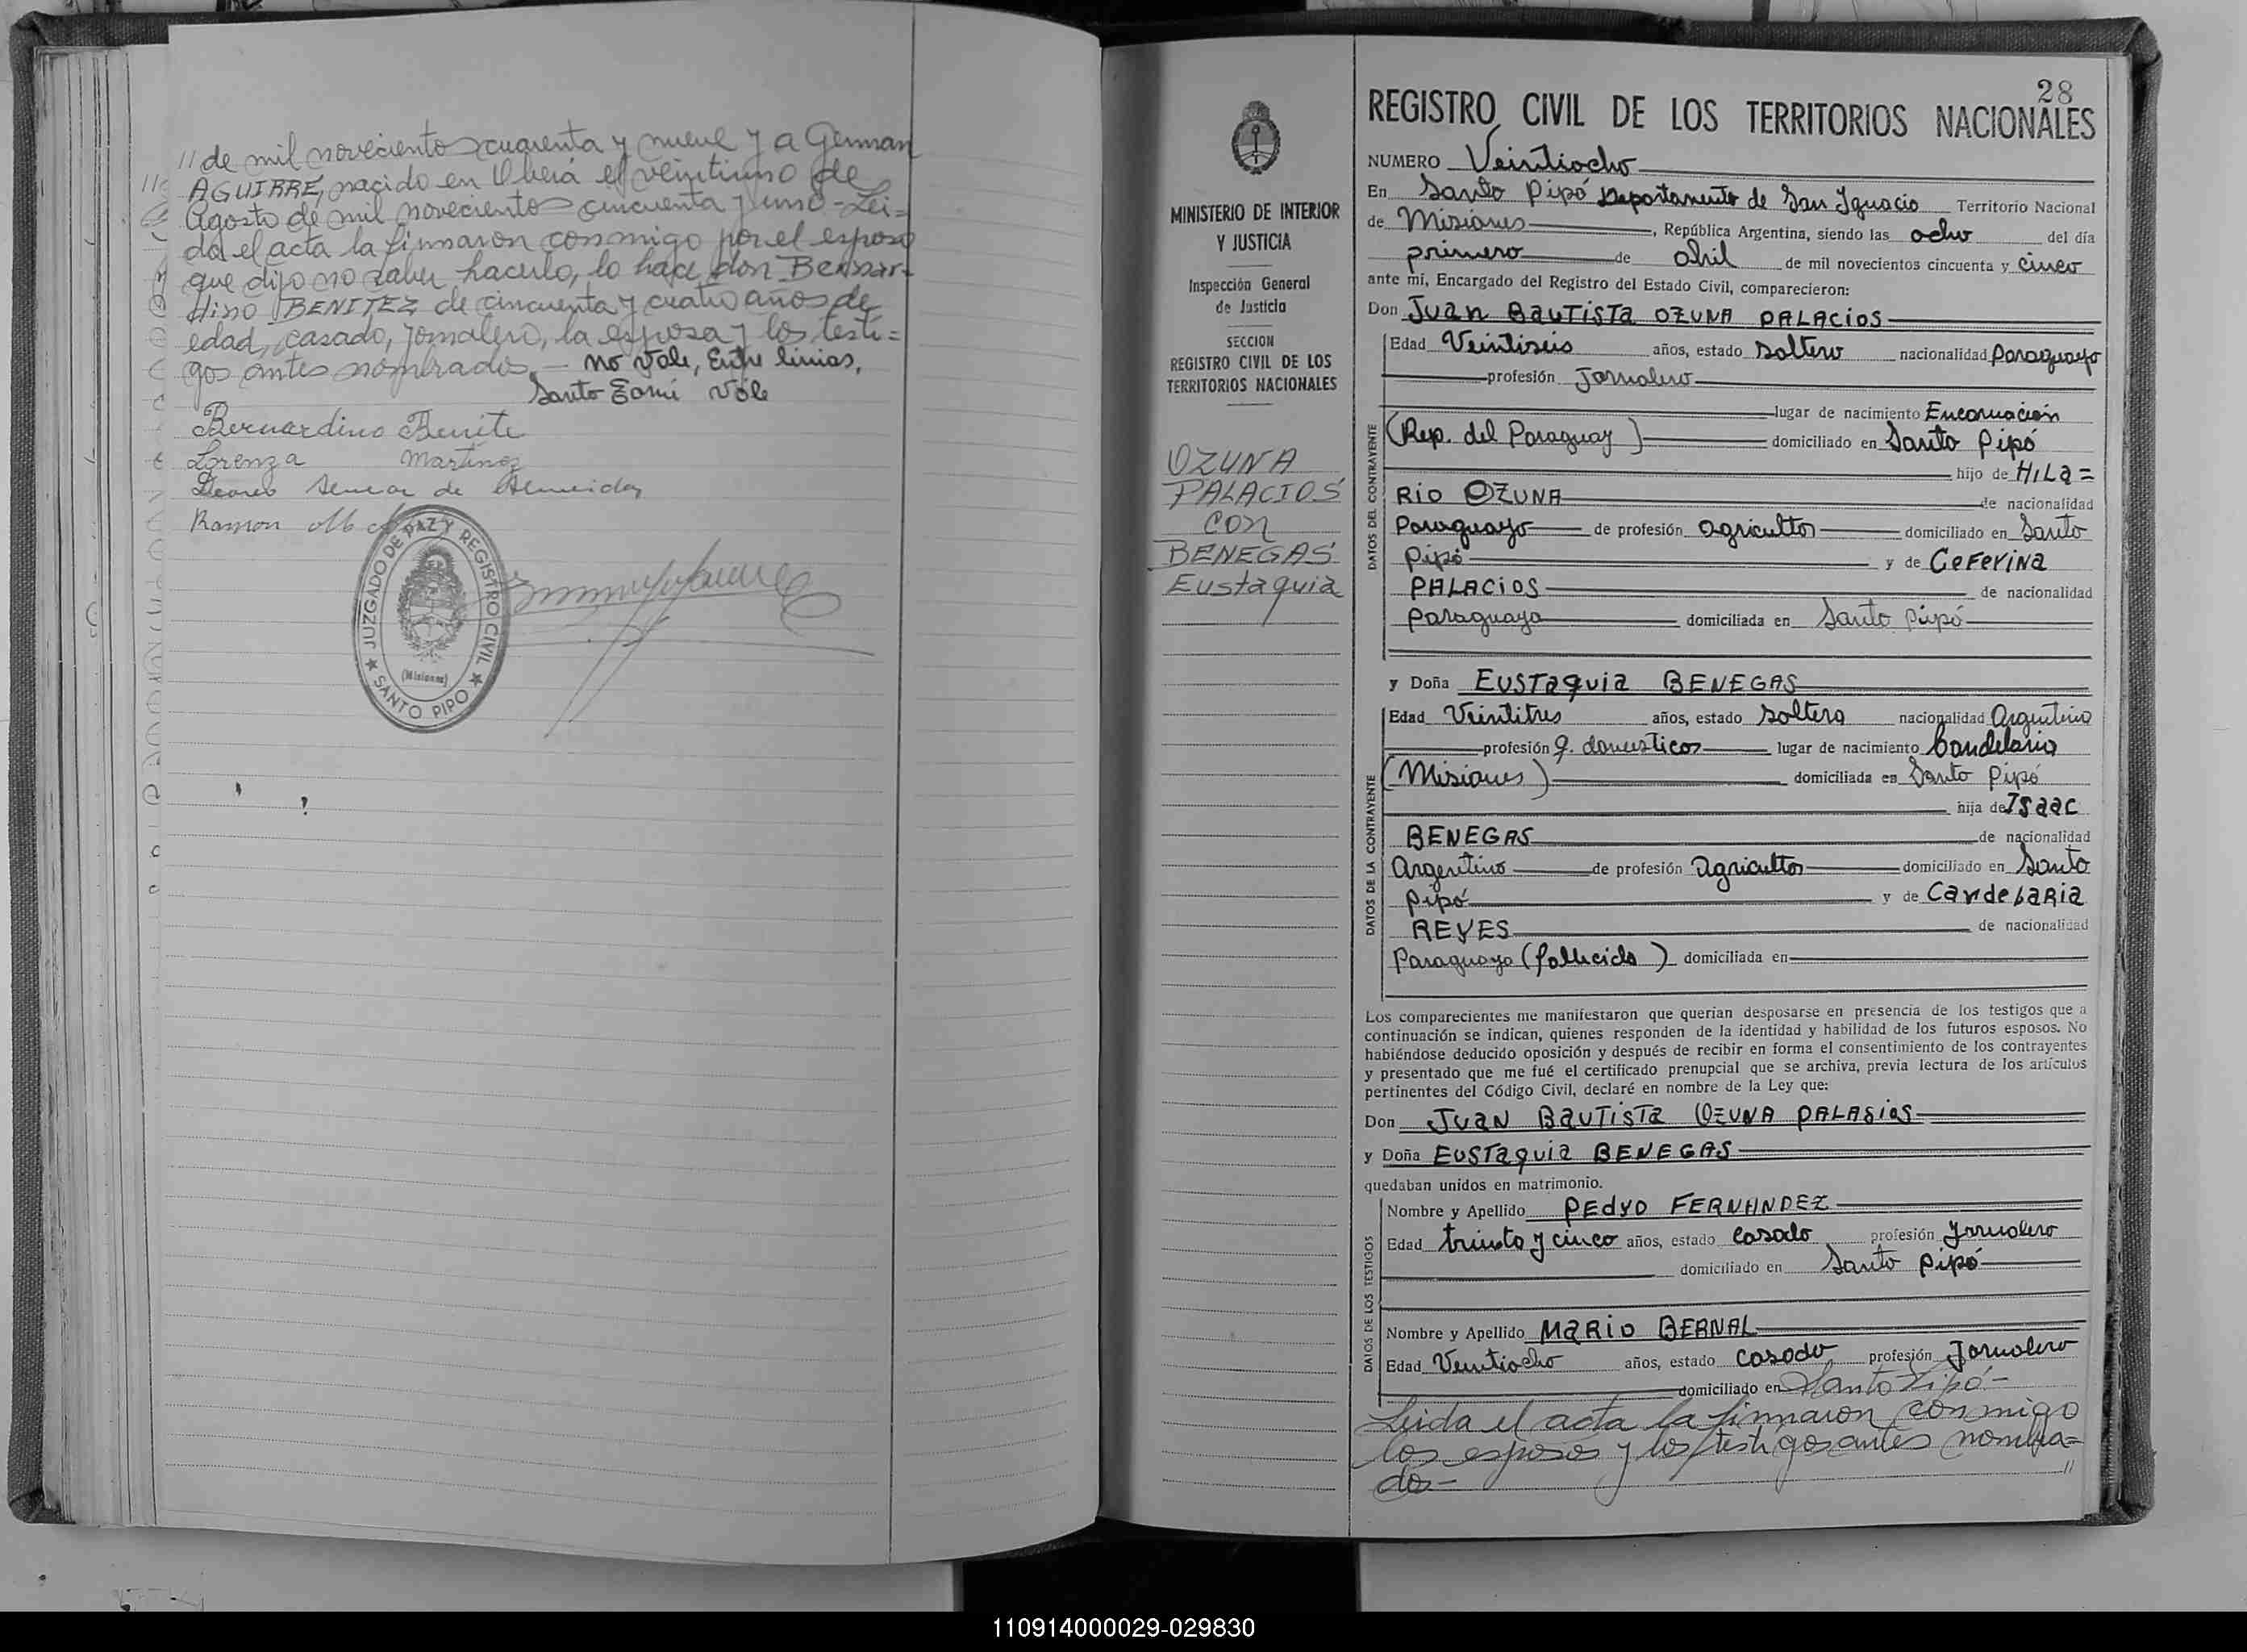 //de mil noveciento cuarenta y nueve y a German
AGUIRRE, nacido en Oberá el veintiuno de
Agosto de mil noveciento cincuenta y uno - Lei=
da el acta la firmaron conmigo por el esposo
que dijo no saber hacerlo, lo hace don Bernar-
dino BENITEZ de cincuenta y cuatro años de
edad, casado, jornalero, la esposa y los testi=
gos antes nombrados. — no vale, Entre linias,
Santo Tomé Vale
Bernardino Benite
Lorenza Martinez
de Almeida
Ramon
JUZGADO DE PAZ Y REGISTRO CIVIL
(Misiones)
★ SANTO PIPO ★
MINISTERIO DE INTERIOR
Y JUSTICIA
Inspección General
de Justicia
SECCION
REGISTRO CIVIL DE LOS
TERRITORIOS NACIONALES
OZUNA
PALACIOS
con
BENEGAS
Eustaquia
28
REGISTRO CIVIL DE LOS TERRITORIOS NACIONALES
NUMERO Veintiocho
En Santo Pipó Departamento de San Ignacio Territorio Nacional
de Misiones, República Argentina, siendo las ocho del día
primero de abril de mil novecientos cincuenta y cinco
ante mi, Encargado del Registro del Estado Civil, comparecieron:
Don Juan Bautista OZUNA PALACIOS
DATOS DEL CONTRAYENTE
Edad Veintiseis años, estado soltero nacionalidad Paraguayo
profesión Jornalero
lugar de nacimiento Encarnación
(Rep. del Paraguay) domiciliado en Santo Pipó
hijo de HILa=
RIO OZUNA de nacionalidad
Paraguayo de profesión agricultor domiciliado en Santo
Pipó y de CeFeriNa
PALACIOS de nacionalidad
Paraguaya domiciliada en Santo Pipó
y Doña EUSTaquia BENEGAS
DATOS DE LA CONTRAYENTE
Edad Veintitres años, estado soltera nacionalidad Argentina
profesión q. domesticos lugar de nacimiento Candelaria
(Misiones) domiciliada en Santo Pipó
hija de ISaac
BENEGAS de nacionalidad
Argentino de profesión agricultor domiciliado en Santo
Pipó y de CandeLaRia
REYES de nacionalidad
Paraguaya (fallecida) domiciliada en
Los comparecientes me manifestaron que querían desposarse en presencia de los testigos que a
continuación se indican, quienes responden de la identidad y habilidad de los futuros esposos. No
habiéndose deducido oposición y después de recibir en forma el consentimiento de los contrayentes
y presentado que me fué el certificado prenupcial que se archiva, previa lectura de los artículos
pertinentes del Código Civil, declaré en nombre de la Ley que:
Don Juan Bautista OZUNA PALASios
y Doña EUSTaquia BENEGAS
quedaban unidos en matrimonio.
DATOS DE LOS TESTIGOS
Nombre y Apellido PEdrO FERNANDEZ
Edad trienta y cinco años, estado casado profesión Jornalero
domiciliado en Santo Pipó
Nombre y Apellido MaRio BERNAL
Edad Veintiocho años, estado casado profesión Jornalero
domiciliado en Santo Pipó -
Leida el acta la firmaron conmigo
los esposos y los testigos antes nombra=
do - //
110914000029-029830